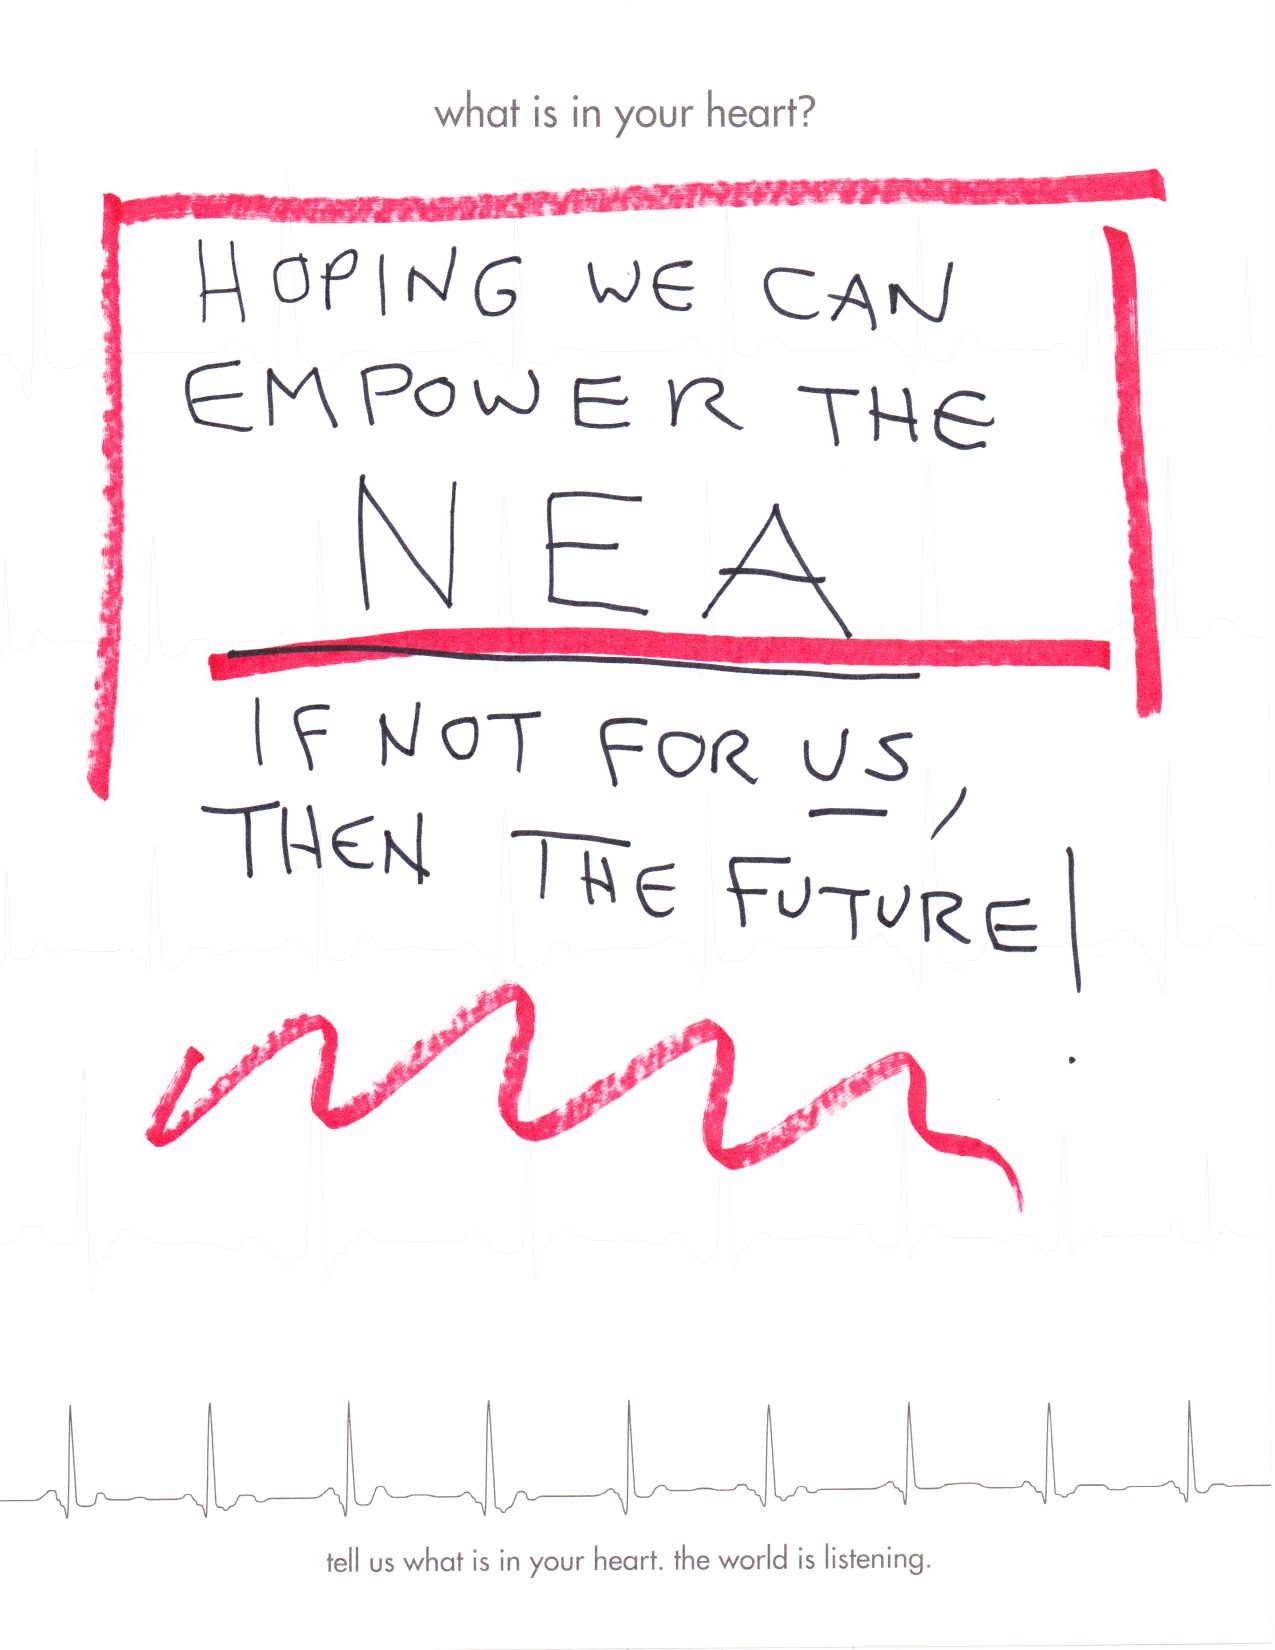 what is in your heart?
HOPING WE CAN
EMPOWER THE
NEA
IF NOT FOR US,
THEN THE FUTURE!
tell us what is in your heart. the world is listening.